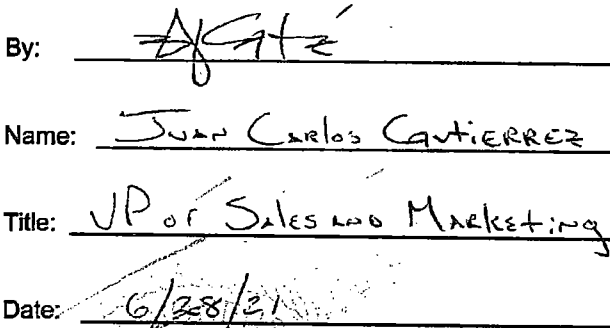 By:
Name: Juan Carlos Gutierrez
Title: VP of Sales and Marketing
Date: 6/28/21